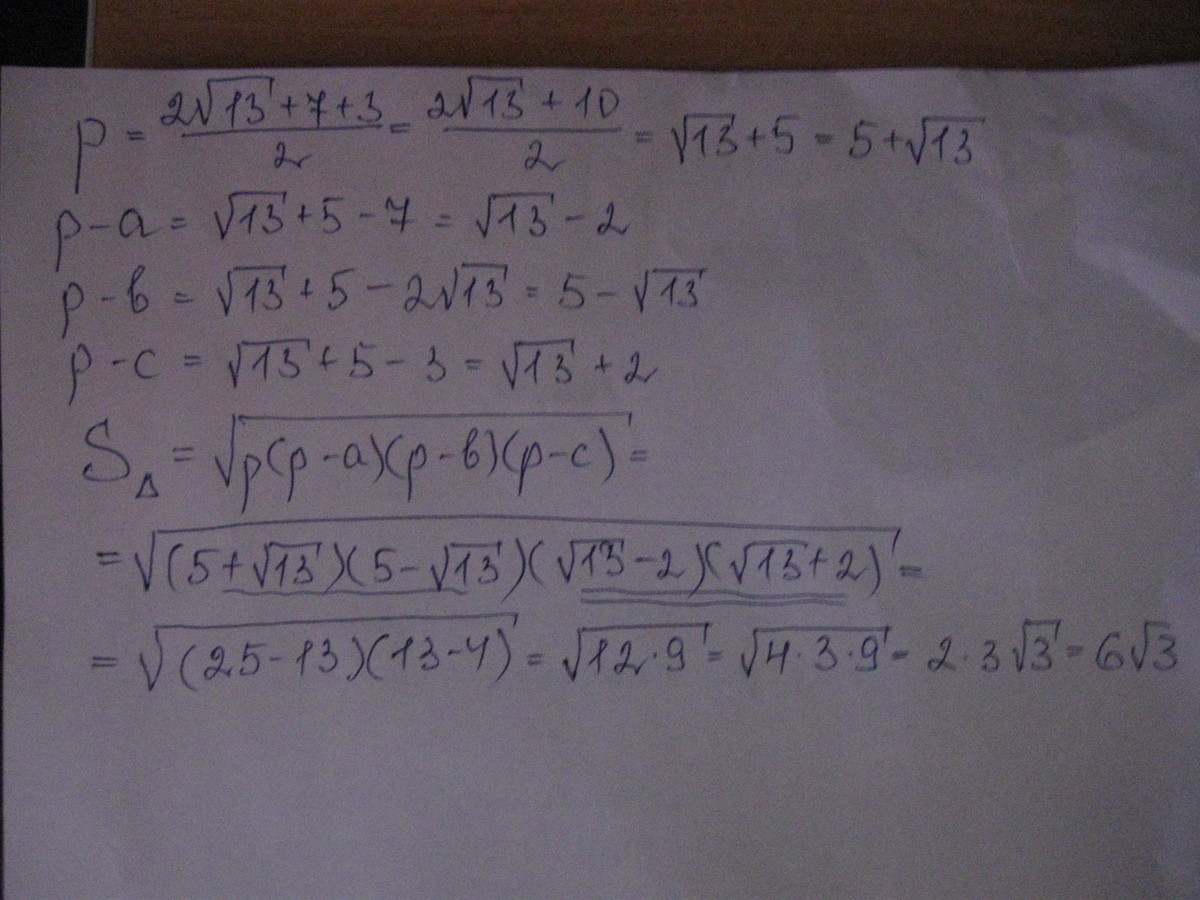 p = (2√13 + 7 + 3)/2 = (2√13 + 10)/2 = √13 + 5 = 5 + √13
p - a = √13 + 5 - 7 = √13 - 2
p - в = √13 + 5 - 2√13 = 5 - √13
p - c = √13 + 5 - 3 = √13 + 2
S△ = √(p(p - a)(p - в)(p - c)) =
= √((5 + √13)(5 - √13)(√13 - 2)(√13 + 2)) =
= √((25 - 13)(13 - 4)) = √(12 · 9) = √(4 · 3 · 9) = 2 · 3√3 = 6√3